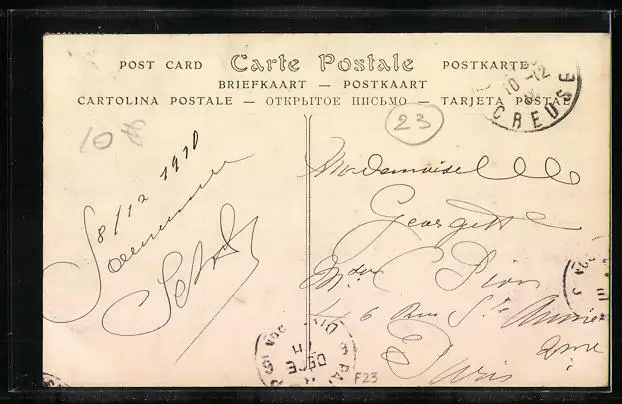 POST CARD Carte Postale POSTKARTE
BRIEFKAART — POSTKAART
CARTOLINA POSTALE — ОТКРЫТОЕ ПИСЬМО — TARJETA POSTAL
10-12
CREUSE
23
8/12 1910
Mademoiselle
Georgette
Dion
46 Rue Ste Anne
2me
Paris
F23